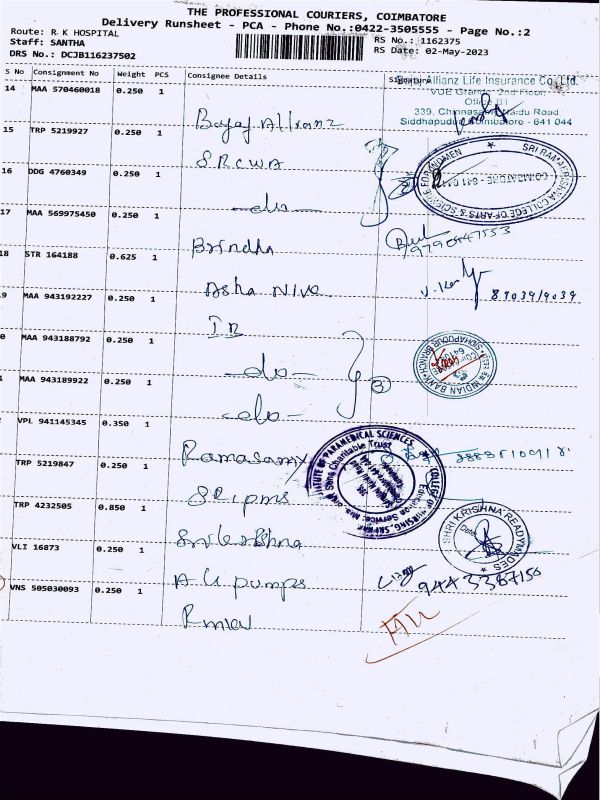 THE PROFESSIONAL COURIERS, COIMBATORE
Delivery Runsheet - PCA - Phone No.:0422-3505555 - Page No.:2
Route: R K HOSPITAL
Staff: SANTHA
DRS No.: DCJB116237502
RS No.: 1162375
RS Date: 02-May-2023
S No Consignment No Weight PCS Consignee Details
14 MAA 570460018 0.250 1 Bajaj Allianz
Bajaj Allianz Life Insurance Co. Ltd.
VUE Grand, 2nd Floor,
339, Chinnasamy Naidu Road
Siddhapudur, Coimbatore - 641 044
15 TRP 5219927 0.250 1 SRCWA
16 DDG 4760349 0.250 1 —do—
SRI RAMAKRISHNA COLLEGE OF ARTS & SCIENCE FOR WOMEN
COIMBATORE - 641 044
17 MAA 569975450 0.250 1 Brindha
9790447553
8 STR 164188 0.625 1 Asha Niva
9 MAA 943192227 0.250 1 IB
0 MAA 943188792 0.250 1 —do—
MAA 943189922 0.250 1 —do—
3
INDIAN BANK
SIDHAPUDUR BRANCH
VPL 941145345 0.350 1 Ramasamy
TRP 5219847 0.250 1 SRIPMS
INSTITUTE OF PARAMEDICAL SCIENCES
COLLEGE OF NURSING
Charitable Trust
TRP 4232505 0.850 1
SHRI KRISHNA READYMADES
VLI 16873 0.250 1 A U pumps
9443387150
VNS 505030093 0.250 1